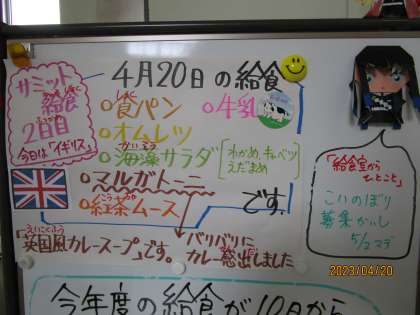 サミット
給食
2日目
今日は「イギリス」
4月20日の給食
○食パン
○牛乳
○オムレツ
○海藻サラダ
わかめ、キャベツ
えだまめ
○マルガトーニ
○紅茶ムース
です。
「英国風カレースープ」です。
バリバリに
カレー感出しました
「給食室から
ひとこと」
こいのぼり
募集かいし
5/2マデ
2023/04/20
今年度の給食が10日から